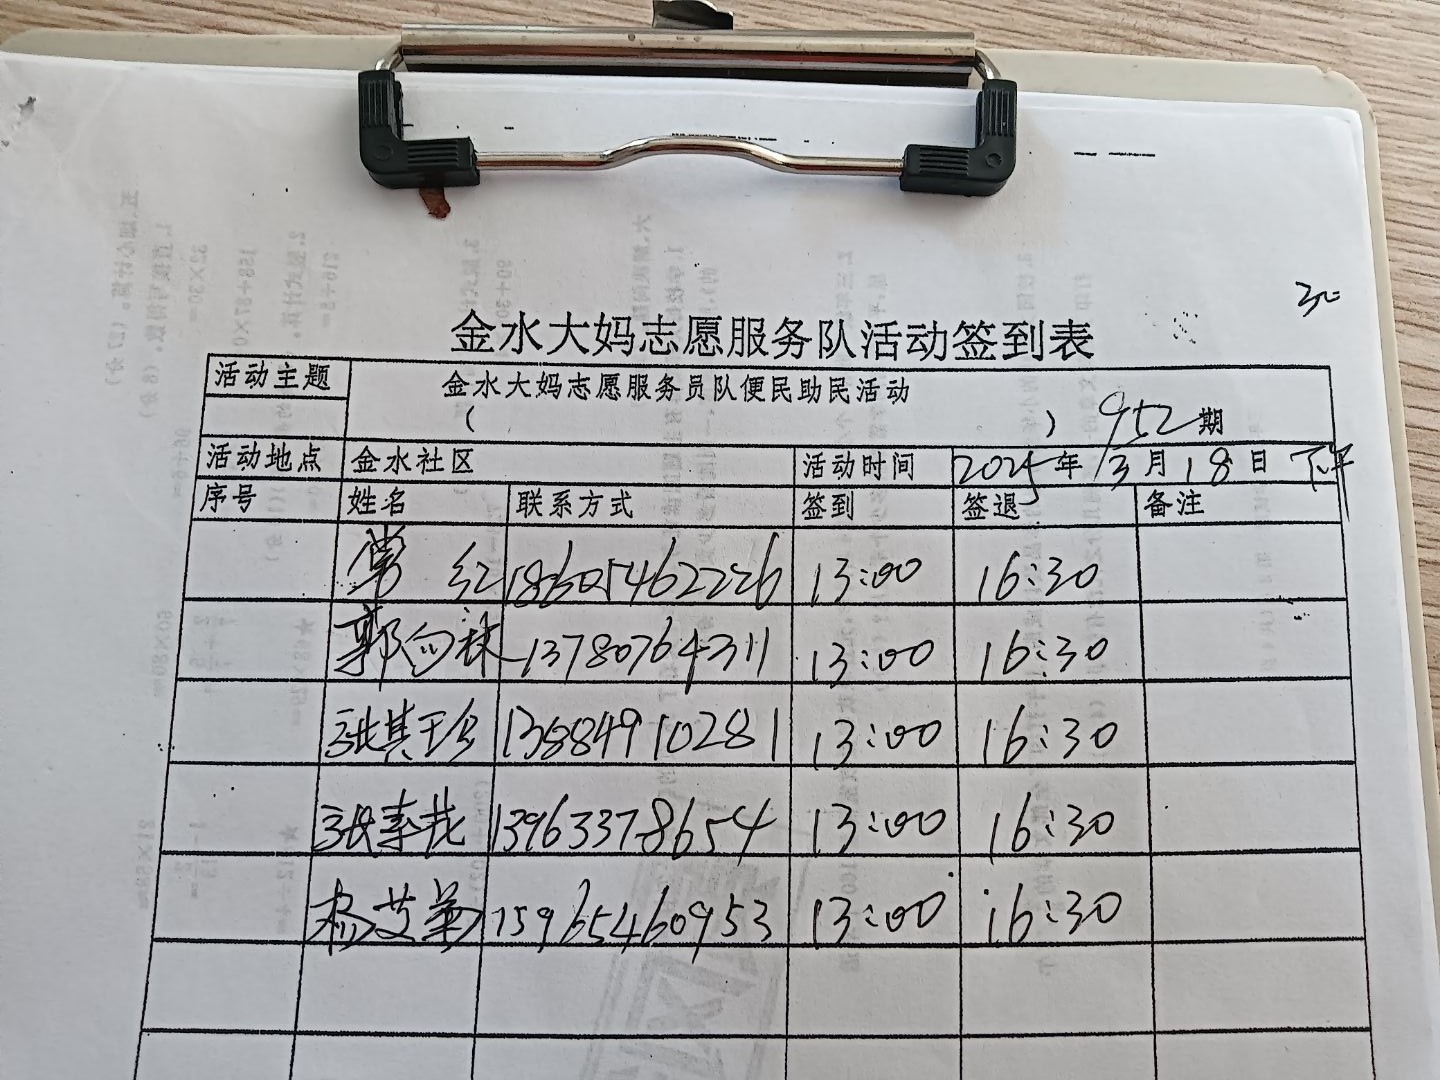 30
金水大妈志愿服务队活动签到表
活动主题 金水大妈志愿服务员队便民助民活动
( ) 952期
活动地点 金水社区 活动时间 2025年 3月 18日 下午
序号 姓名 联系方式 签到 签退 备注
常红 18605462226 13:00 16:30
郭向林 13780764311 13:00 16:30
张其玉 13884910281 13:00 16:30
张素花 13963378654 13:00 16:30
杨艾华 15965460953 13:00 16:30